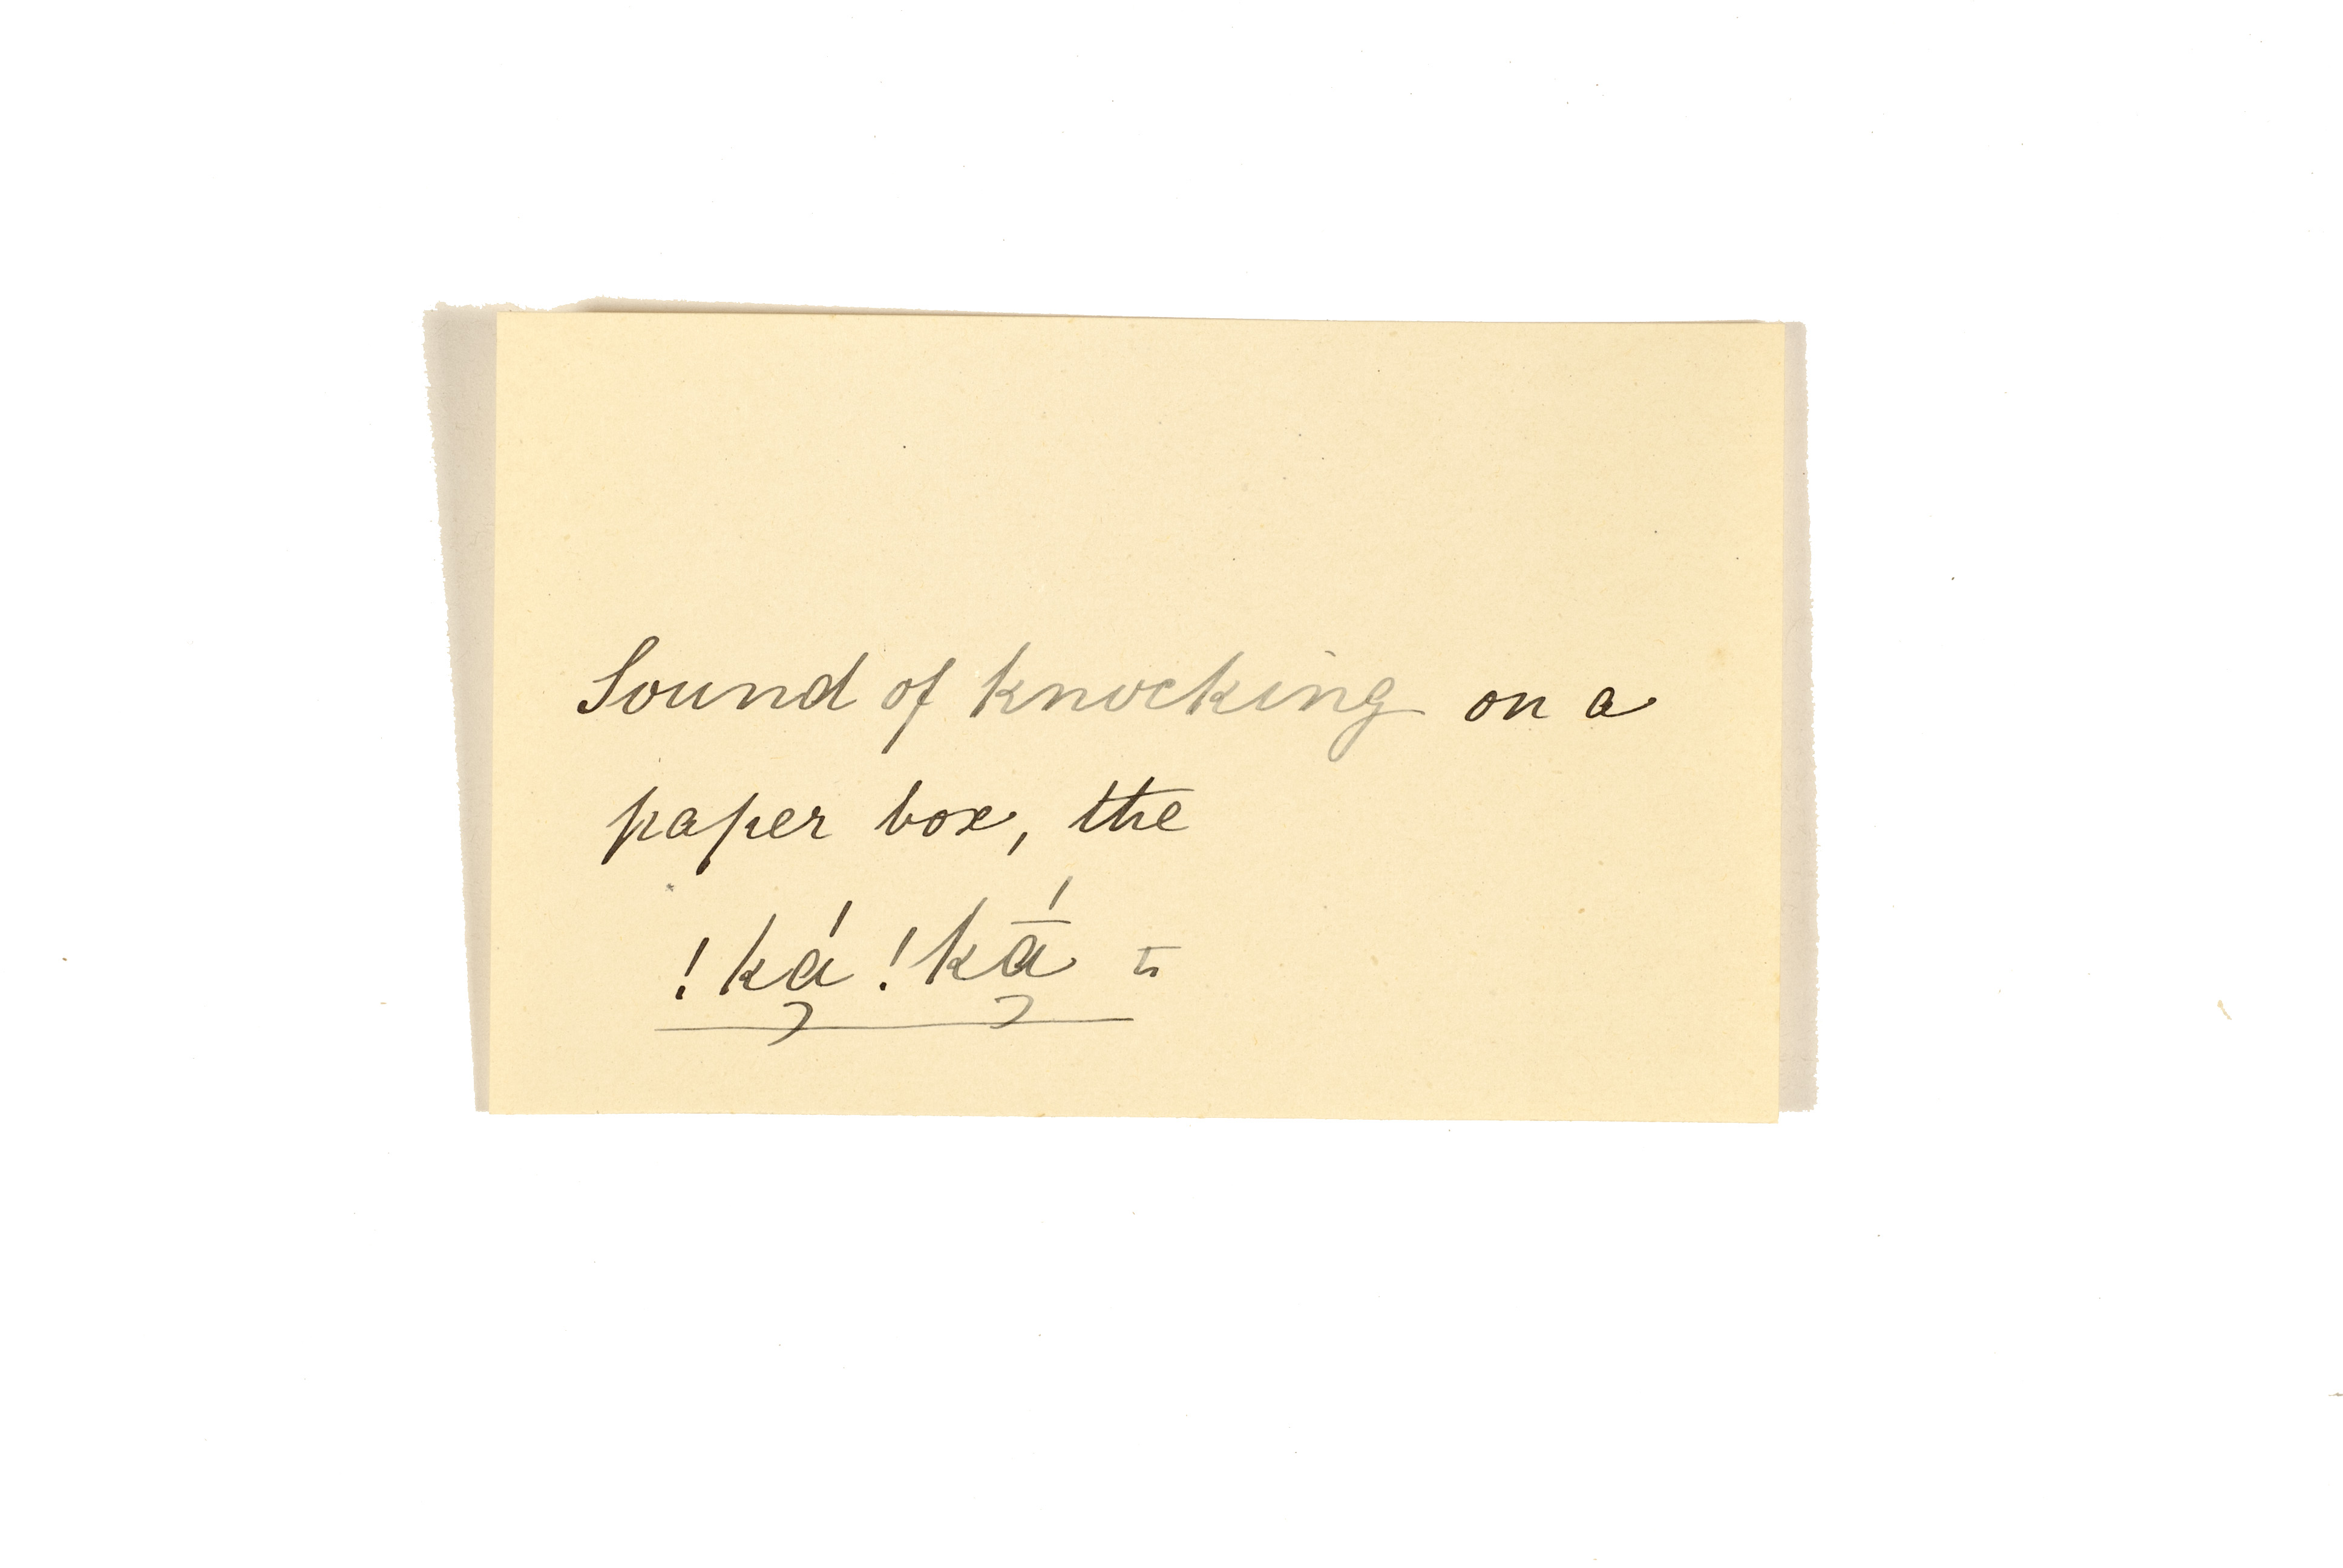 Sound of knocking on a
paper box, the
!ká̦ !kā̦́ ti